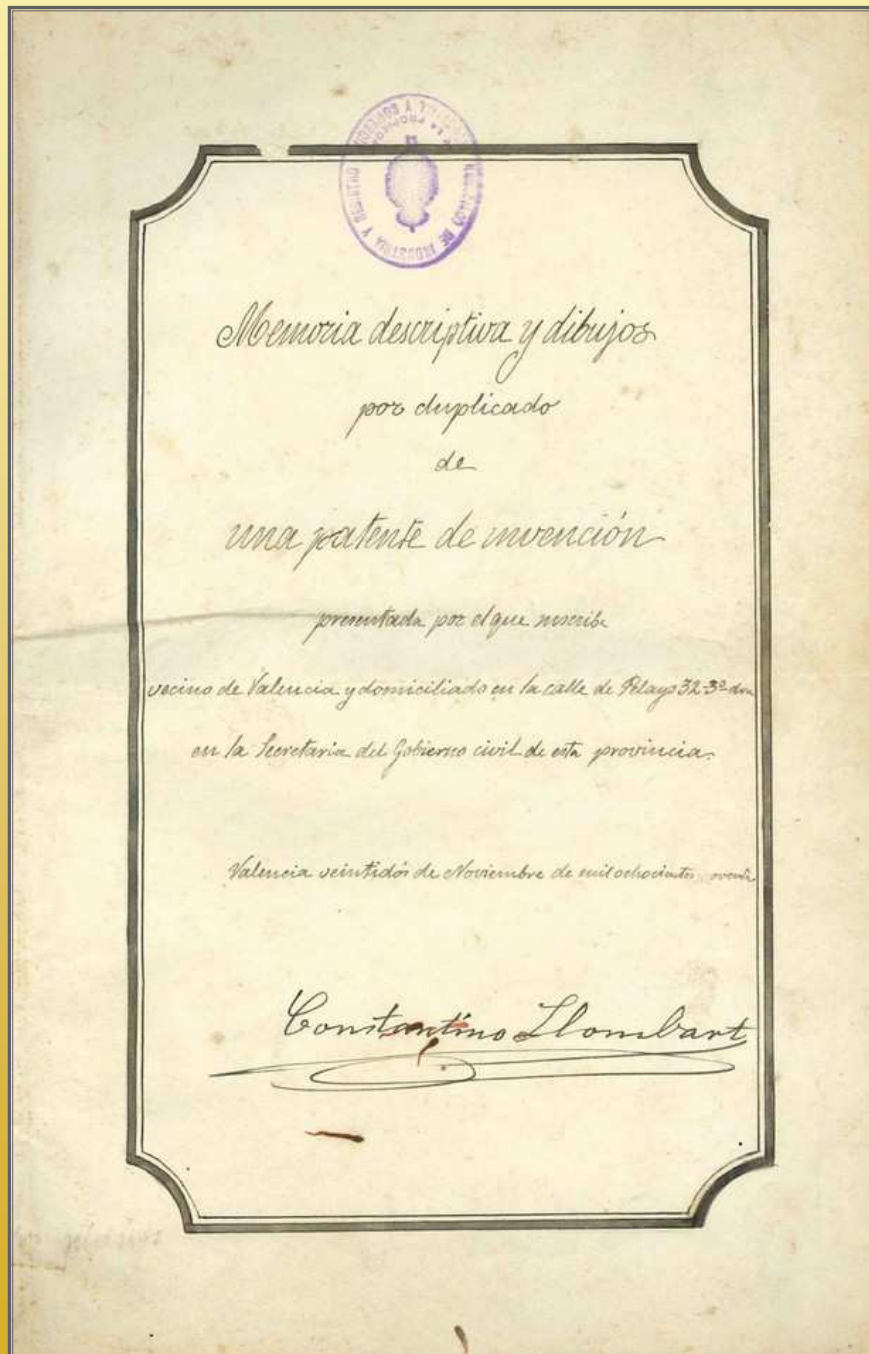 Memoria descriptiva y dibujos
por duplicado
de
una patente de invención
presentada por el que suscribe
vecino de Valencia y domiciliado en la calle de Pelayo 32-3º dra
en la Secretaria del Gobierno civil de esta provincia.
Valencia veintidós de Noviembre de mil ochocientos
Constantino Llombart